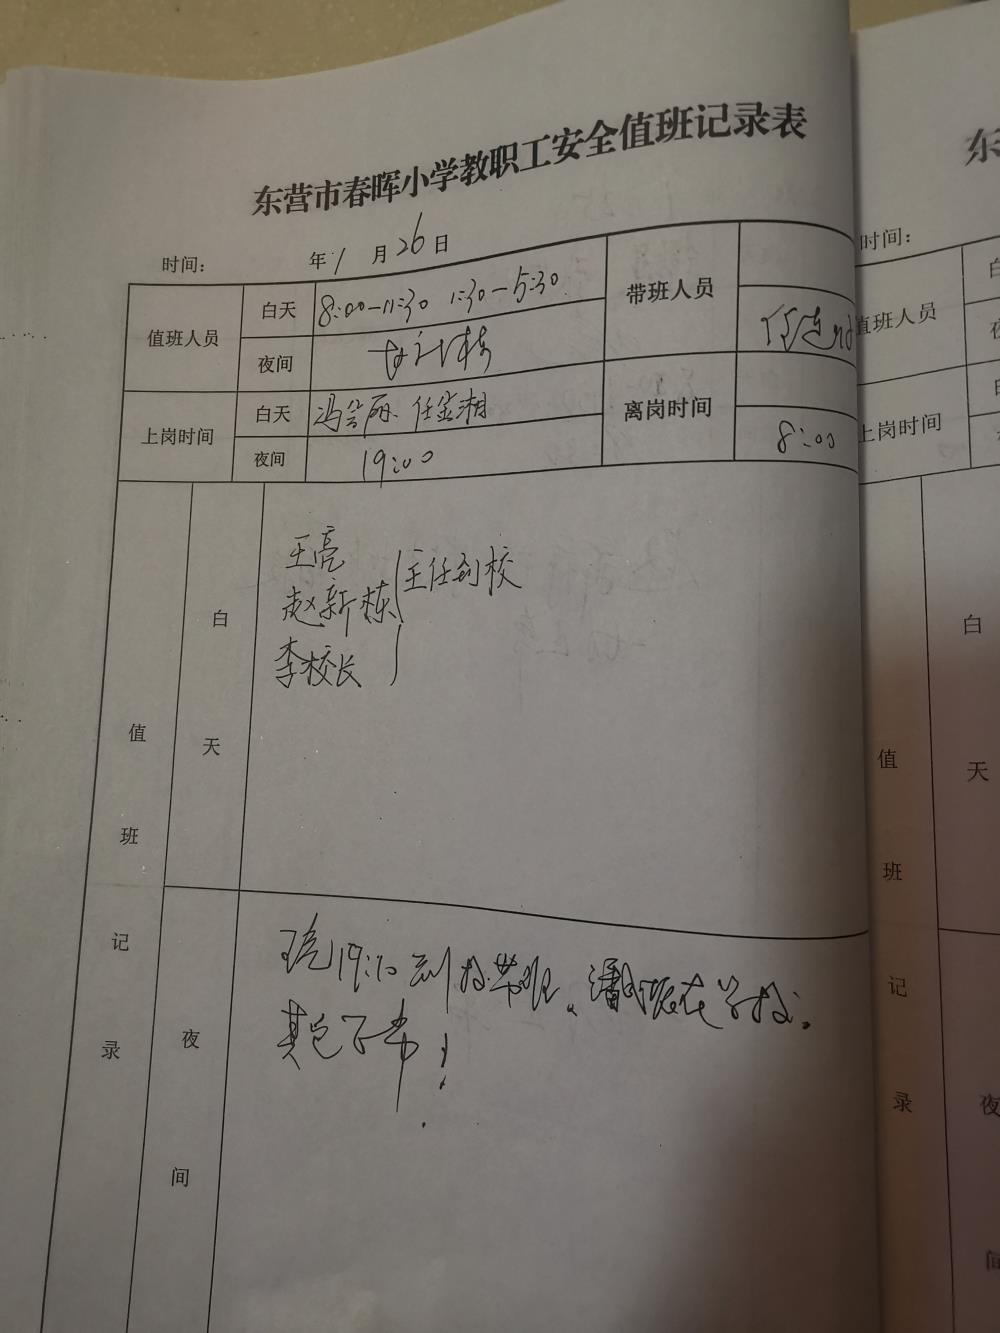 东营市春晖小学教职工安全值班记录表
时间： 年1月26日
值班人员 白天 8:00-11:30 1:30-5:30 带班人员
夜间
上岗时间 白天 冯 任 离岗时间
夜间 19:00 8:00
王亮
赵新栋 主任到校
李校长
白天
值班记录
王亮19:10到校带班、潘 在学校。
其它正常！
夜间
东
时间：
值班人员 白
夜
上岗时间 白
值班记录
白天
夜间